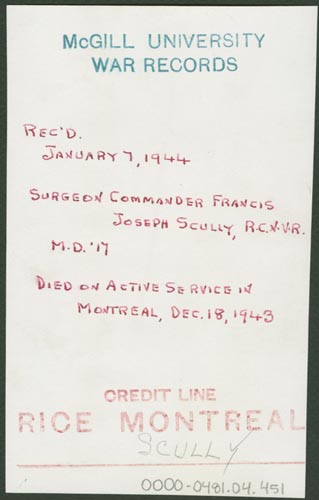 McGILL UNIVERSITY
WAR RECORDS
REC'D.
JANUARY 7, 1944
SURGEON COMMANDER FRANCIS
JOSEPH SCULLY, R.C.N.V.R.
M.D. '17
DIED ON ACTIVE SERVICE IN
MONTREAL, DEC. 18, 1943
CREDIT LINE
RICE MONTREAL
SCULLY
0000-0481.04.451